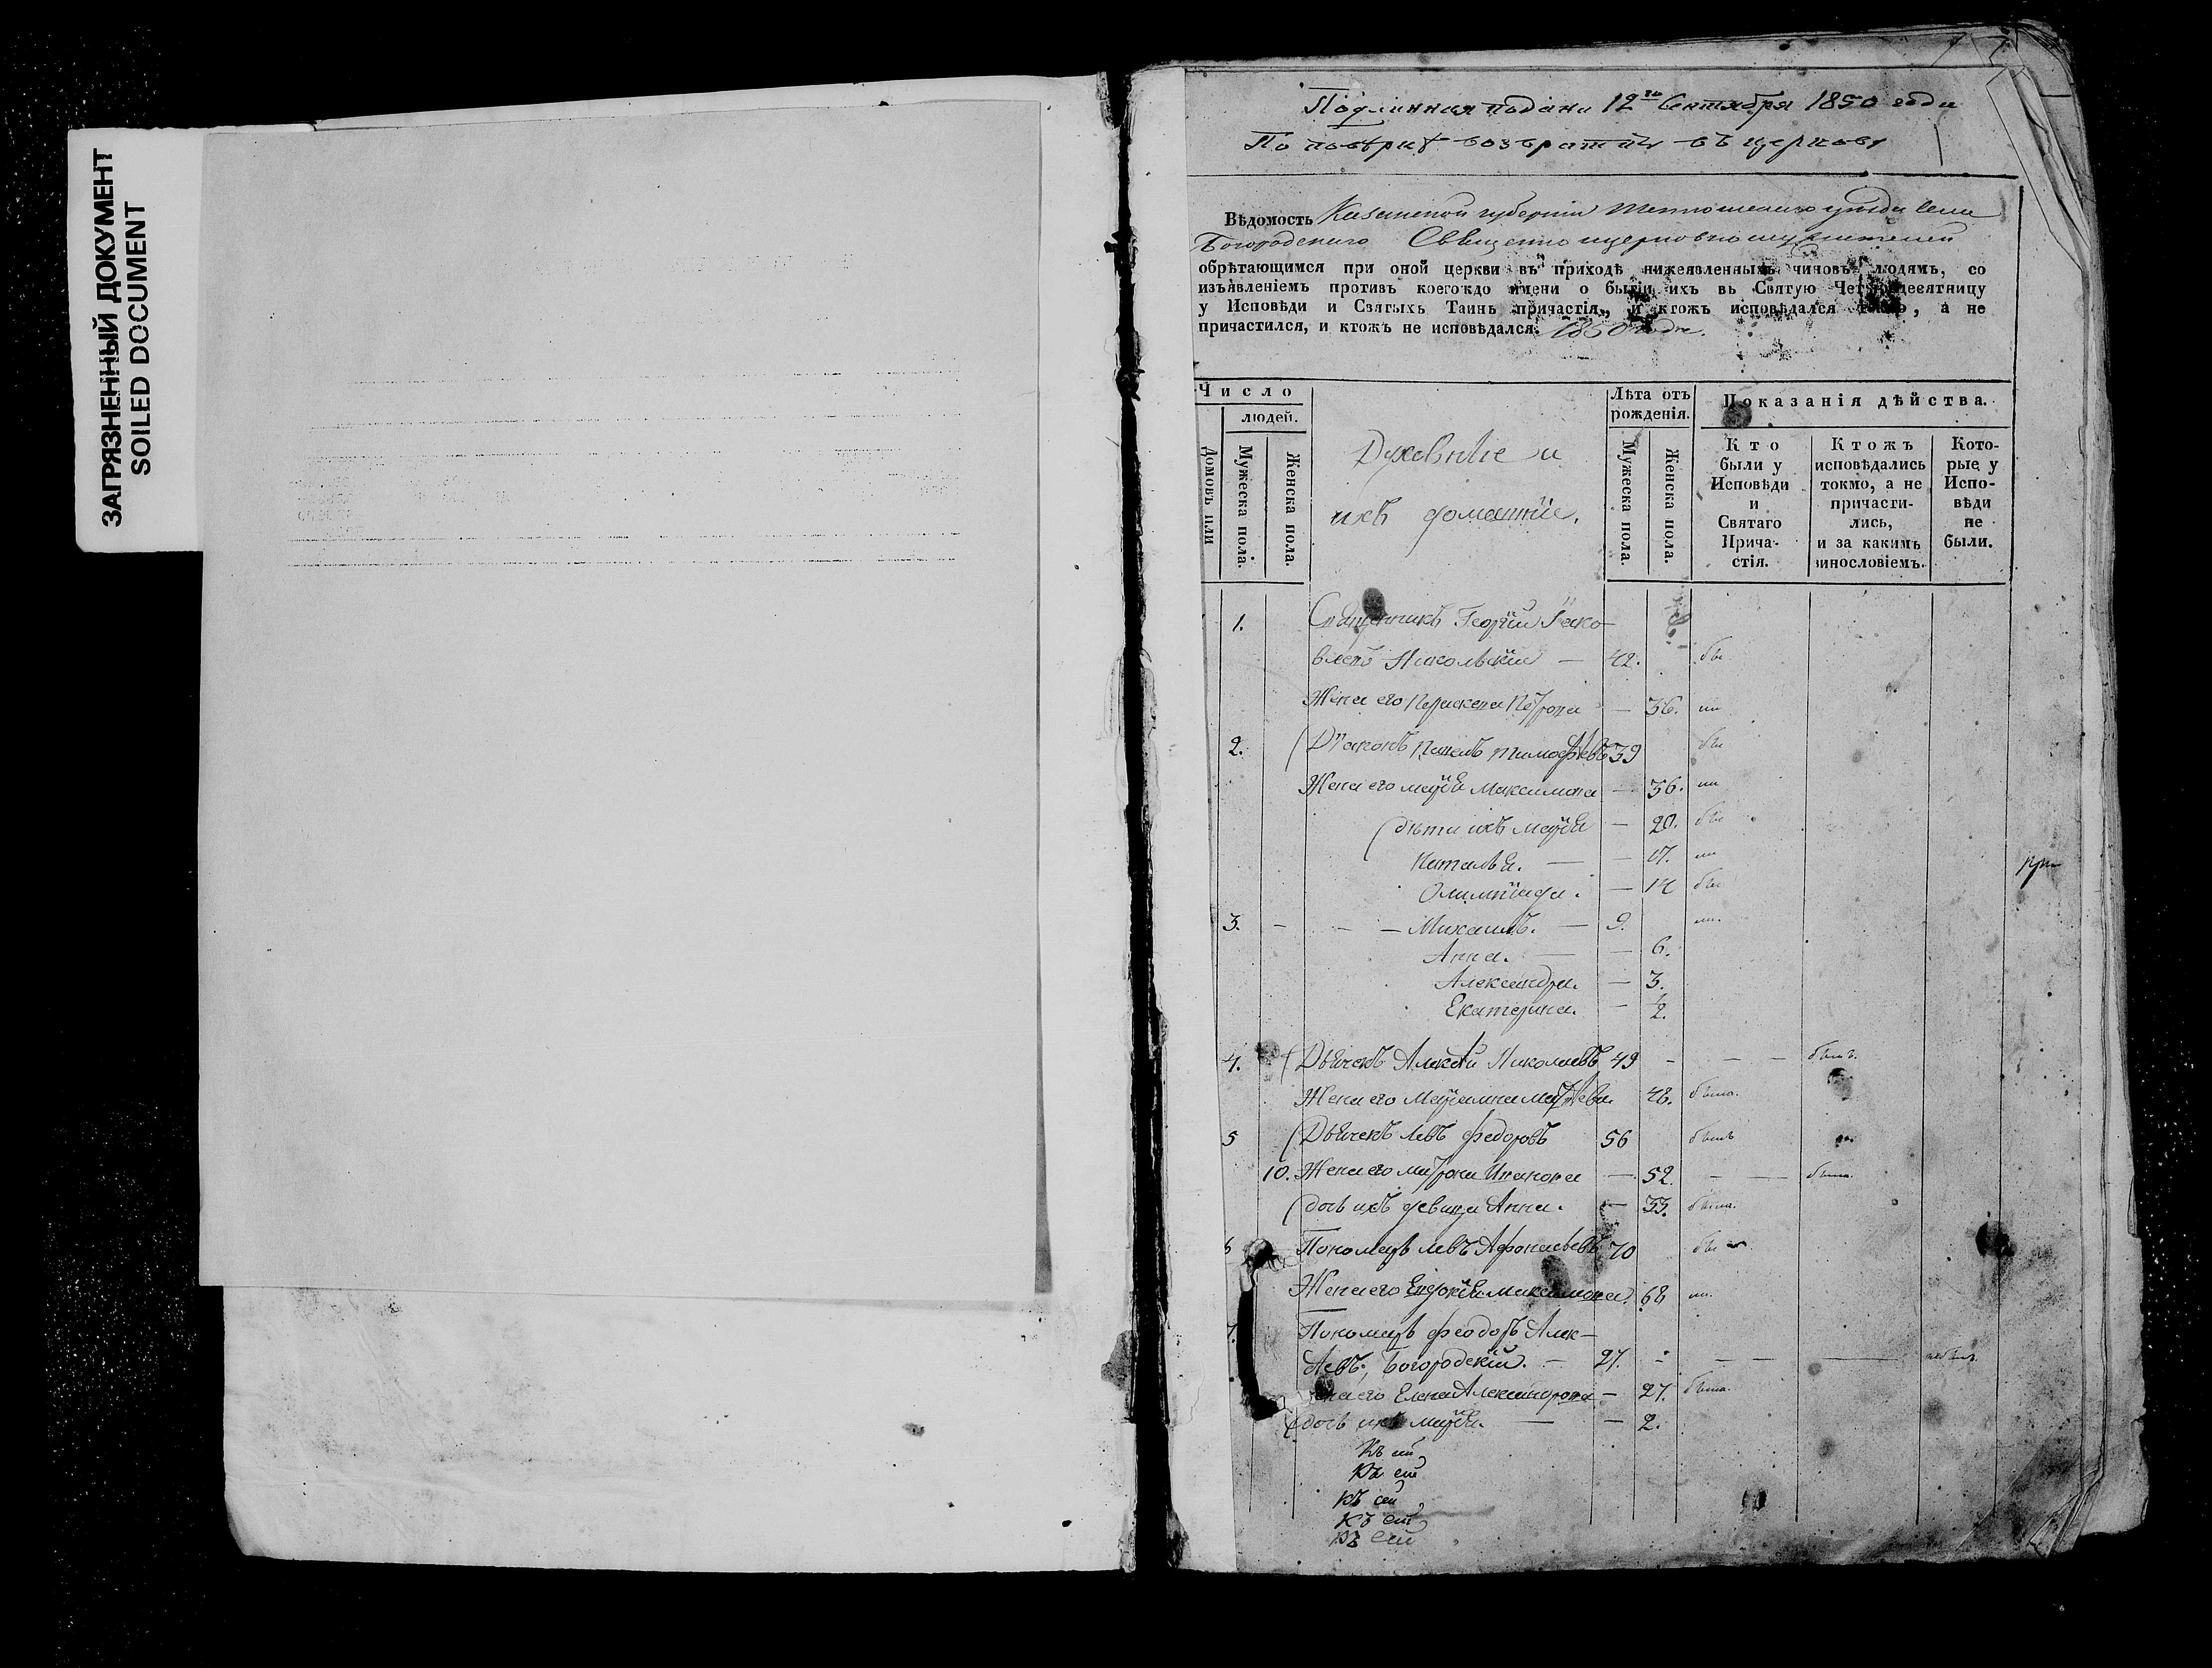 ЗАГРЯЗНЕННЫЙ ДОКУМЕНТ
SOILED DOCUMENT
Подлинная подана 12го Сентября 1850 года
По повѣркѣ возвратить въ церковь
Вѣдомость Казанской губерніи уѣзда Села
Богородскаго Священно церковно служителей
обрѣтающимся при оной церкви въ приходѣ нижеявленныхъ чиновъ людямъ, со
изъявленіемъ противъ коегождо имени о бытіи ихъ въ Святую Четыредесятницу
у Исповѣди и Святыхъ Таинъ причастія, и ктожъ исповѣдался токмо, а не
причастился, и ктожъ не исповѣдался. 1850 года.
Число
людей.
Домовъ или
Мужеска пола.
Женска пола.
Духовные и
ихъ домашніе.
Лѣта отъ
рожденія.
Мужеска пола.
Женска пола.
Показанія дѣйства.
Кто
были у
Исповѣди
и
Святаго
Прича-
стія.
Ктожъ
исповѣдались
токмо, а не
причасти-
лись,
и за какимъ
винословіемъ.
Кото-
рые у
Испо-
вѣди
не
были.
1. Священникъ Георгій Яко-
влевъ Никольскій — 42.
Жена его Параскева Петрова — 36.
2. Діаконъ Павелъ Тимофѣевъ 39
Жена его Марія Максимова — 36.
дѣти ихъ Марія — 20.
Наталья. — 17.
Олимпіада. — 14
3. — Михаилъ. — 9.
Анна. — 6.
Александра. — 3.
Екатерина. — ½.
4. Дьячекъ Алексѣй Николаевъ 49 — былъ.
Жена его 48. была.
5 Дьячекъ Левъ Федоровъ 56 былъ
10. Жена его Матрона Иванова — 52. — была.
дочь ихъ девица Анна. — 33. была.
6 Пономарь Левъ Афонасьевъ 70
Жена его Максимова. 68
7. Пономарь Феодоръ Алек-
сѣевъ, Богородскій. — 27. — не былъ.
Жена его Елена Александрова — 27. была.
дочь ихъ Марія — 2.
Къ сей
Къ сей
Къ сей
Къ сей
Къ сей